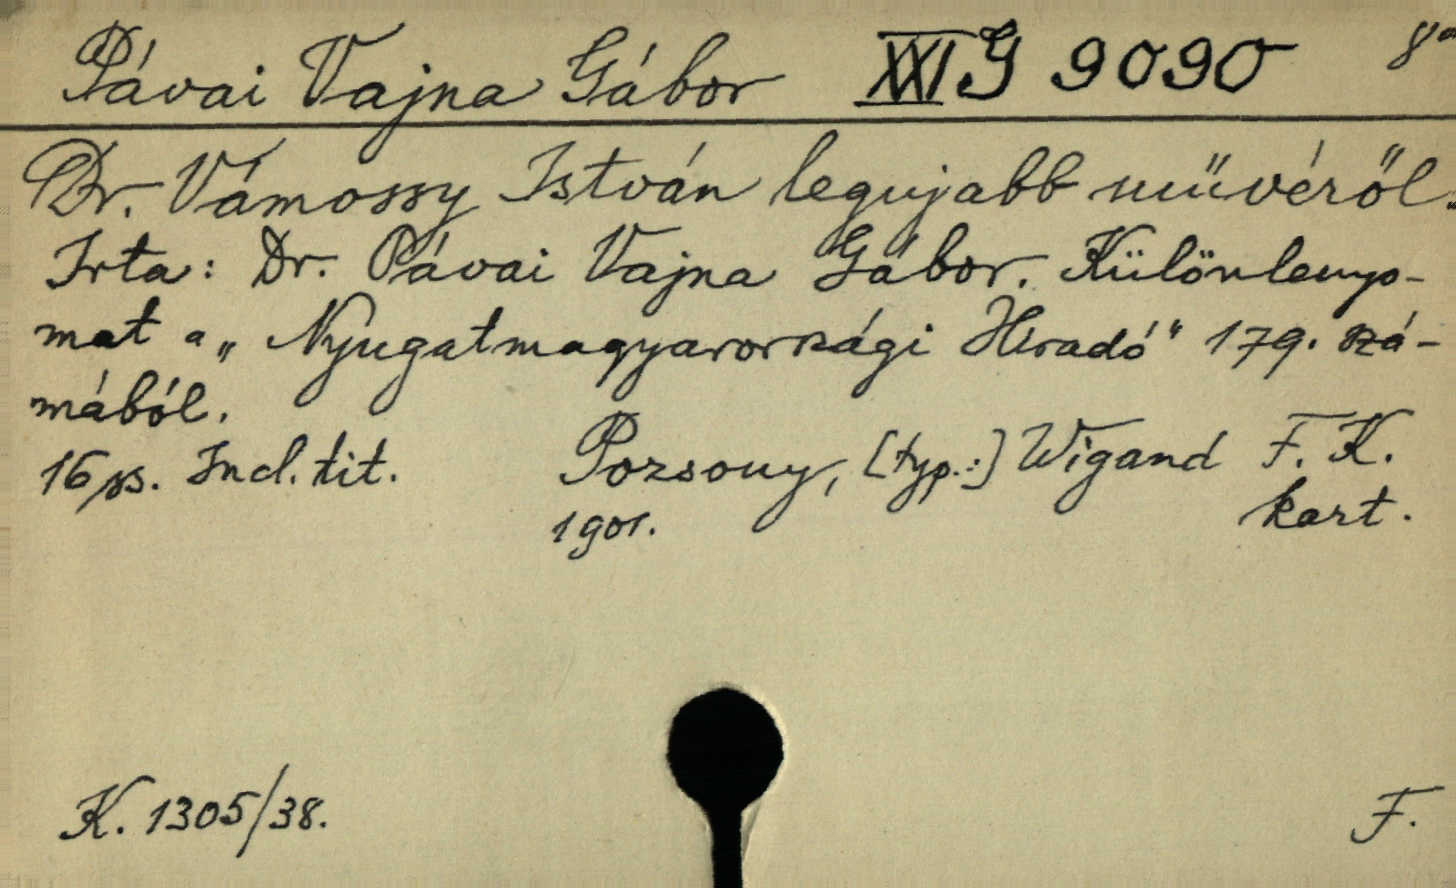 Pávai Vajna Gábor XXI G 9090 8°
Dr. Vámossy István legujabb művéről.
Irta: Dr. Pávai Vajna Gábor. Különlenyo-
mat a „Nyugatmagyarországi Hiradó" 179. szá-
mából.
16 ps. Incl. tit. Pozsony, [typ.:] Wigand F. K.
1901. kart.
K. 1305/38. F.